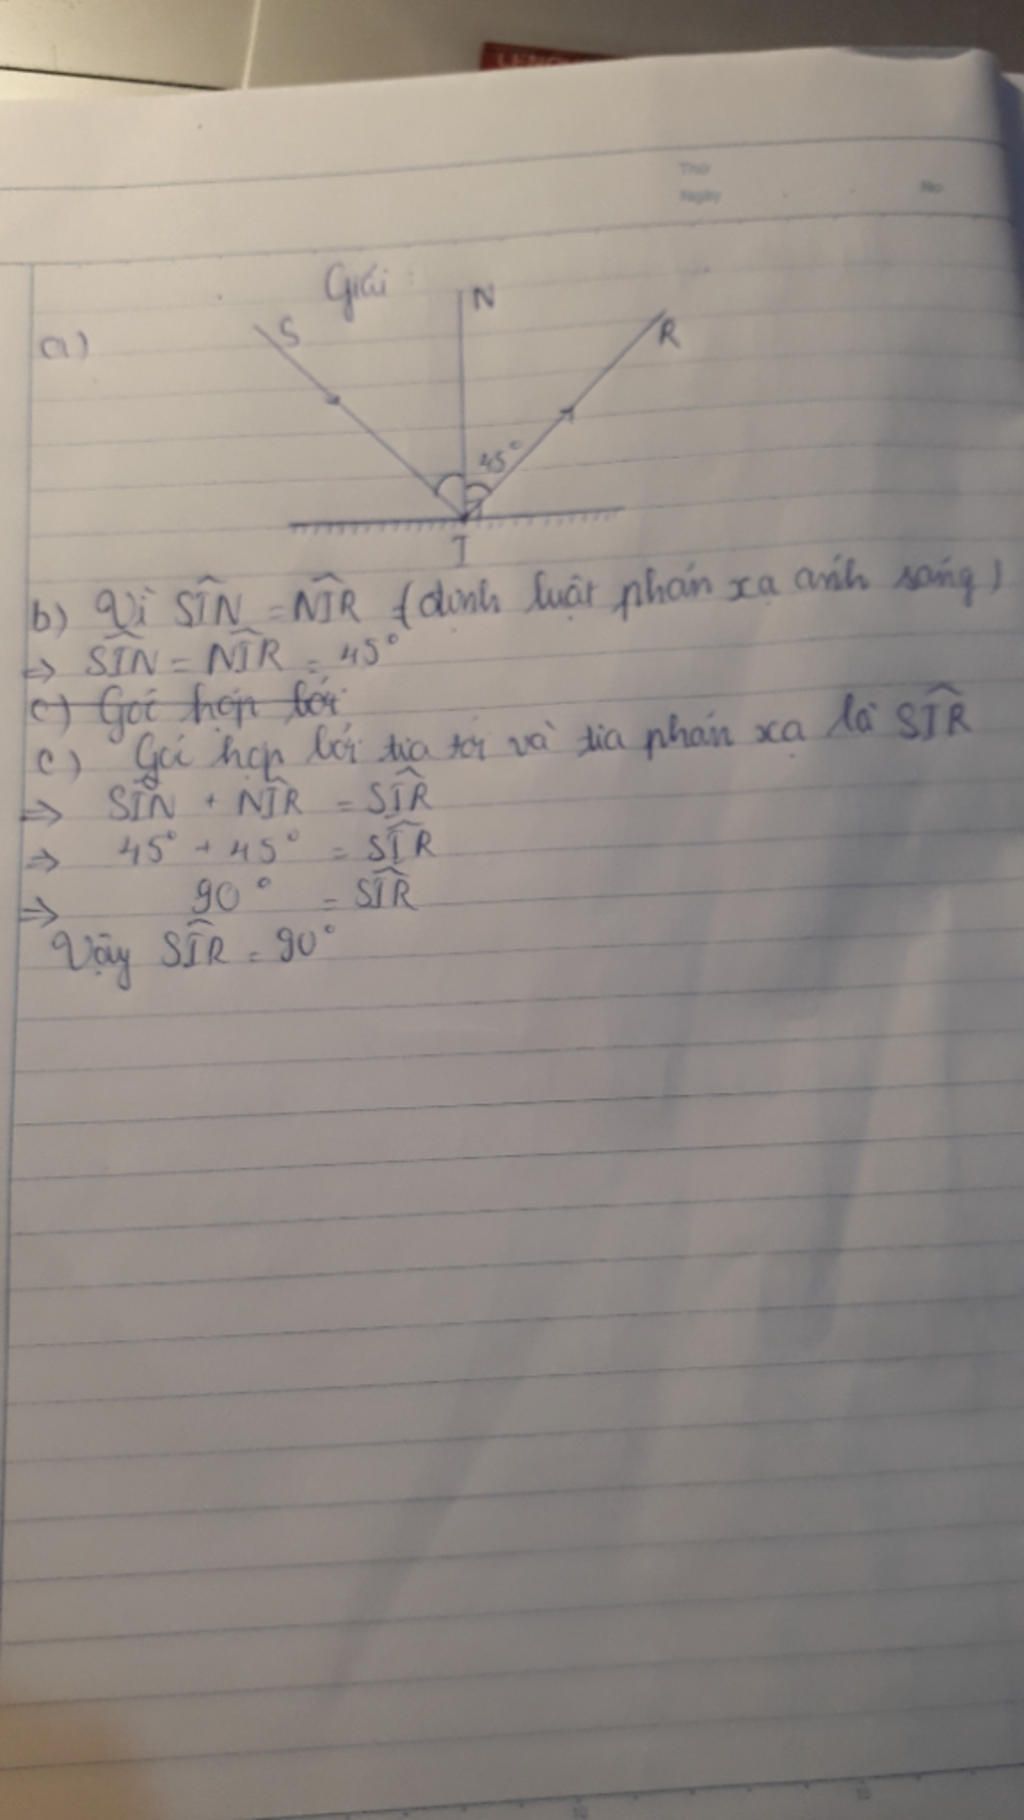 Thứ
Ngày
No
Giải :
a)
S
N
R
45°
I
b) Vì SÎN = NÎR (định luật phản xạ ánh sáng)
=> SÎN = NÎR = 45°
c) Góc hợp bởi
c) Góc hợp bởi tia tới và tia phản xạ là SÎR
=> SÎN + NÎR = SÎR
=> 45° + 45° = SÎR
=> 90° = SÎR
Vậy SÎR = 90°